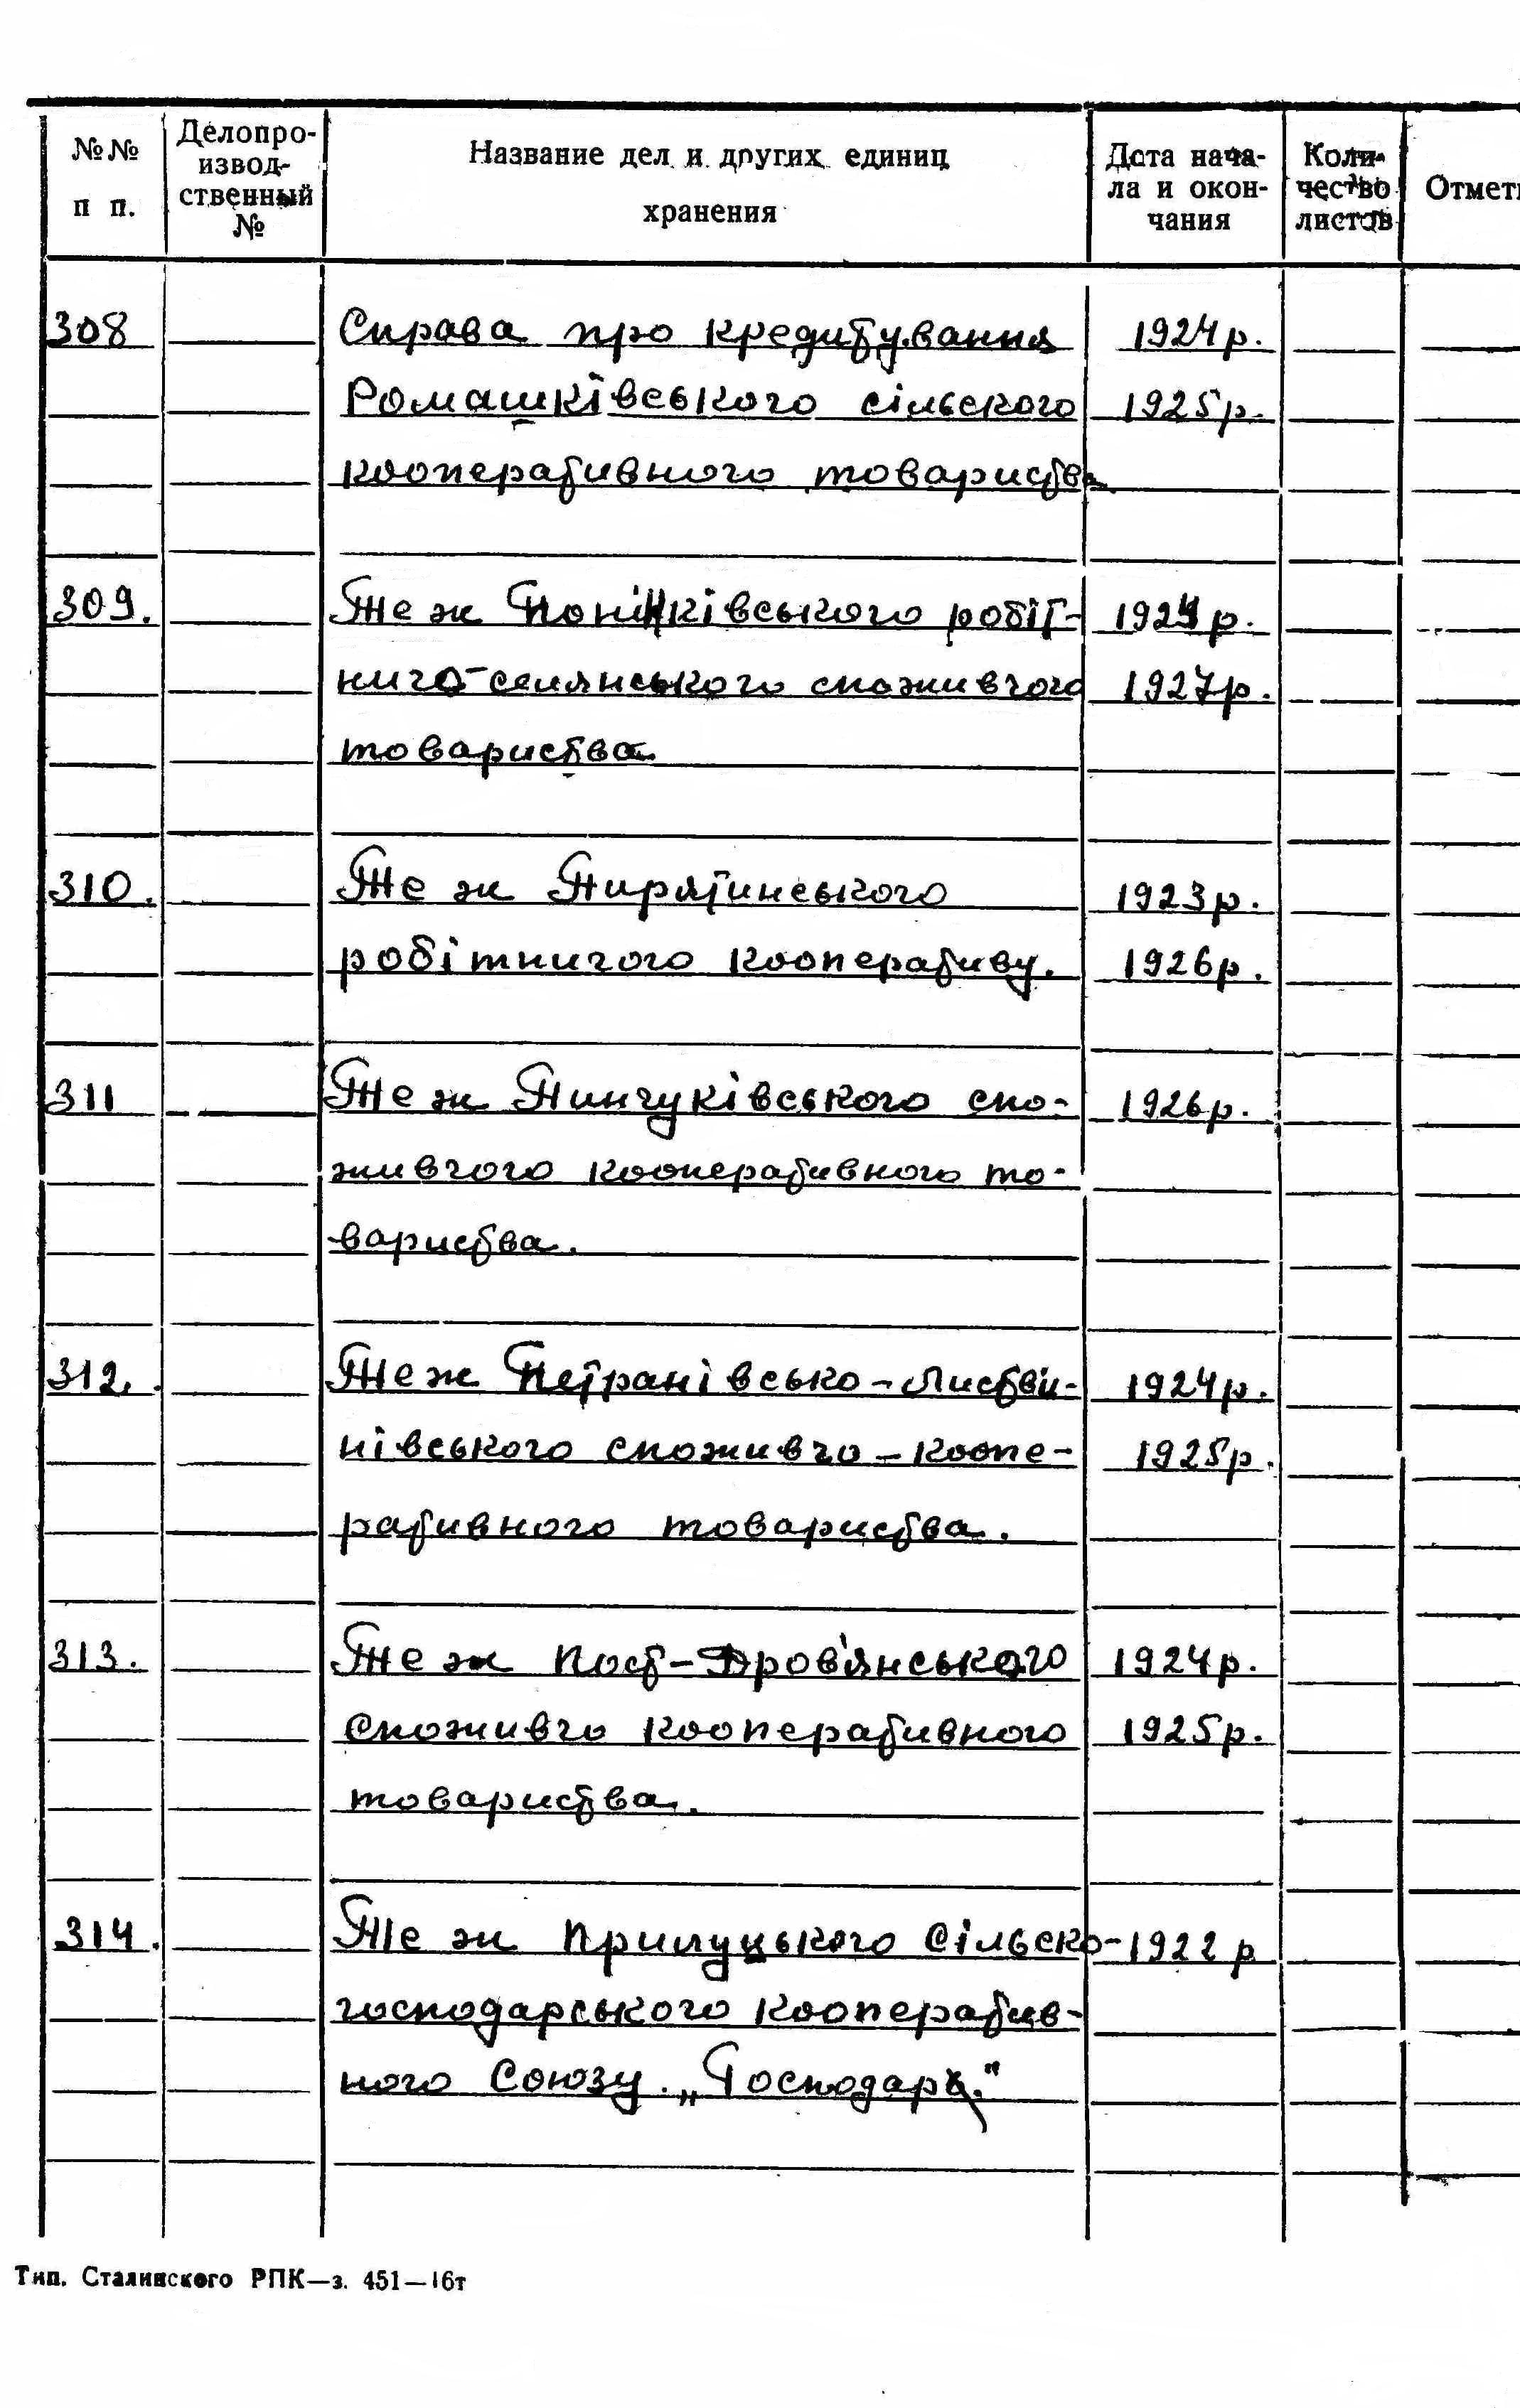 №№ п п.
Делопро-
извод-
ственный
№
Название дел и других единиц
хранения
Дата нача-
ла и окон-
чания
Коли-
чество
листов
Отмет
308 Справа про кредитування 1924р.
Ромашківського сільского 1925р.
кооперативного товариства
309. Те ж Понінківського робіт- 1924р.
ничо-селянського споживчого 1927р.
товариства
310. Те ж Пирятинського 1923р.
робітничого кооперативу. 1926р.
311 Те ж Пинчуківського спо- 1926р.
живчого кооперативного то-
вариства.
312. Те ж Петранівсько-Листви- 1924р.
нівського споживчо-коопе- 1925р.
ративного товариства.
313. Те ж Пост-Дров'янського 1924р.
споживчо кооперативного 1925р.
товариства.
314. Те ж Прилуцького Сільско- 1922р
господарського кооператив-
ного Союзу „Господар."
Тип. Сталинского РПК—з. 451—16т